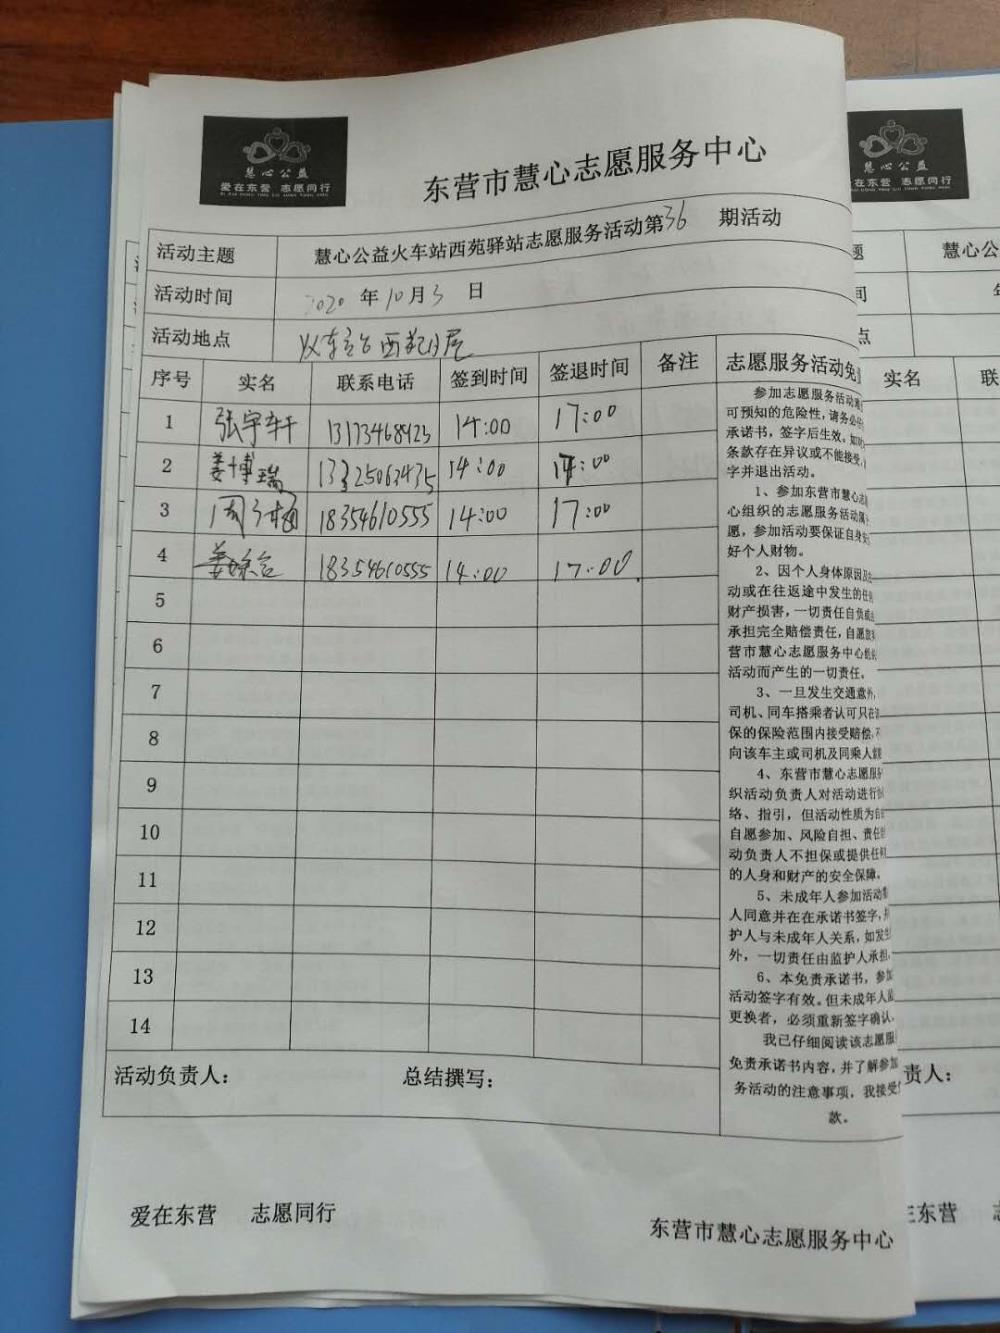 慧心公益
爱在东营 志愿同行
东营市慧心志愿服务中心
活动主题 慧心公益火车站西苑驿站志愿服务活动第36 期活动
活动时间 2020 年10月3 日
活动地点
序号 实名 联系电话 签到时间 签退时间 备注 志愿服务活动免
1 张宇轩 13173468923 14:00 17:00
2 姜博瑞 14:00 :00
3 周 18354610555 14:00 17:00
4 姜 18354610555 14:00 17:00
5
6
7
8
9
10
11
12
13
14
参加志愿服务活动
可预知的危险性，请务必
承诺书，签字后生效。如
条款存在异议或不能接受，
字并退出活动。
1、参加东营市慧心
心组织的志愿服务活动属
愿，参加活动要保证自身安
好个人财物。
2、因个人身体原因及
动或在往返途中发生的任
财产损害，一切责任自负或
承担完全赔偿责任，自愿放
营市慧心志愿服务中心组
活动而产生的一切责任。
3、一旦发生交通意外，
司机、同车搭乘者认可只在
保的保险范围内接受赔偿，不
向该车主或司机及同乘人
4、东营市慧心志愿服
织活动负责人对活动进行
络、指引，但活动性质为自
自愿参加、风险自担、责任
动负责人不担保或提供任
的人身和财产的安全保障。
5、未成年人参加活动
人同意并在在承诺书签字，
护人与未成年人关系，如发
外，一切责任由监护人承担。
6、本免责承诺书，参
活动签字有效。但未成年人
更换者，必须重新签字确认。
我已仔细阅读该志愿服
免责承诺书内容，并了解参加
务活动的注意事项，我接受
款。
活动负责人： 总结撰写：
爱在东营 志愿同行
东营市慧心志愿服务中心
慧心公益
爱在东营 志愿同行
题 慧心公
间 年
点
实名 联
责人：
东营 志